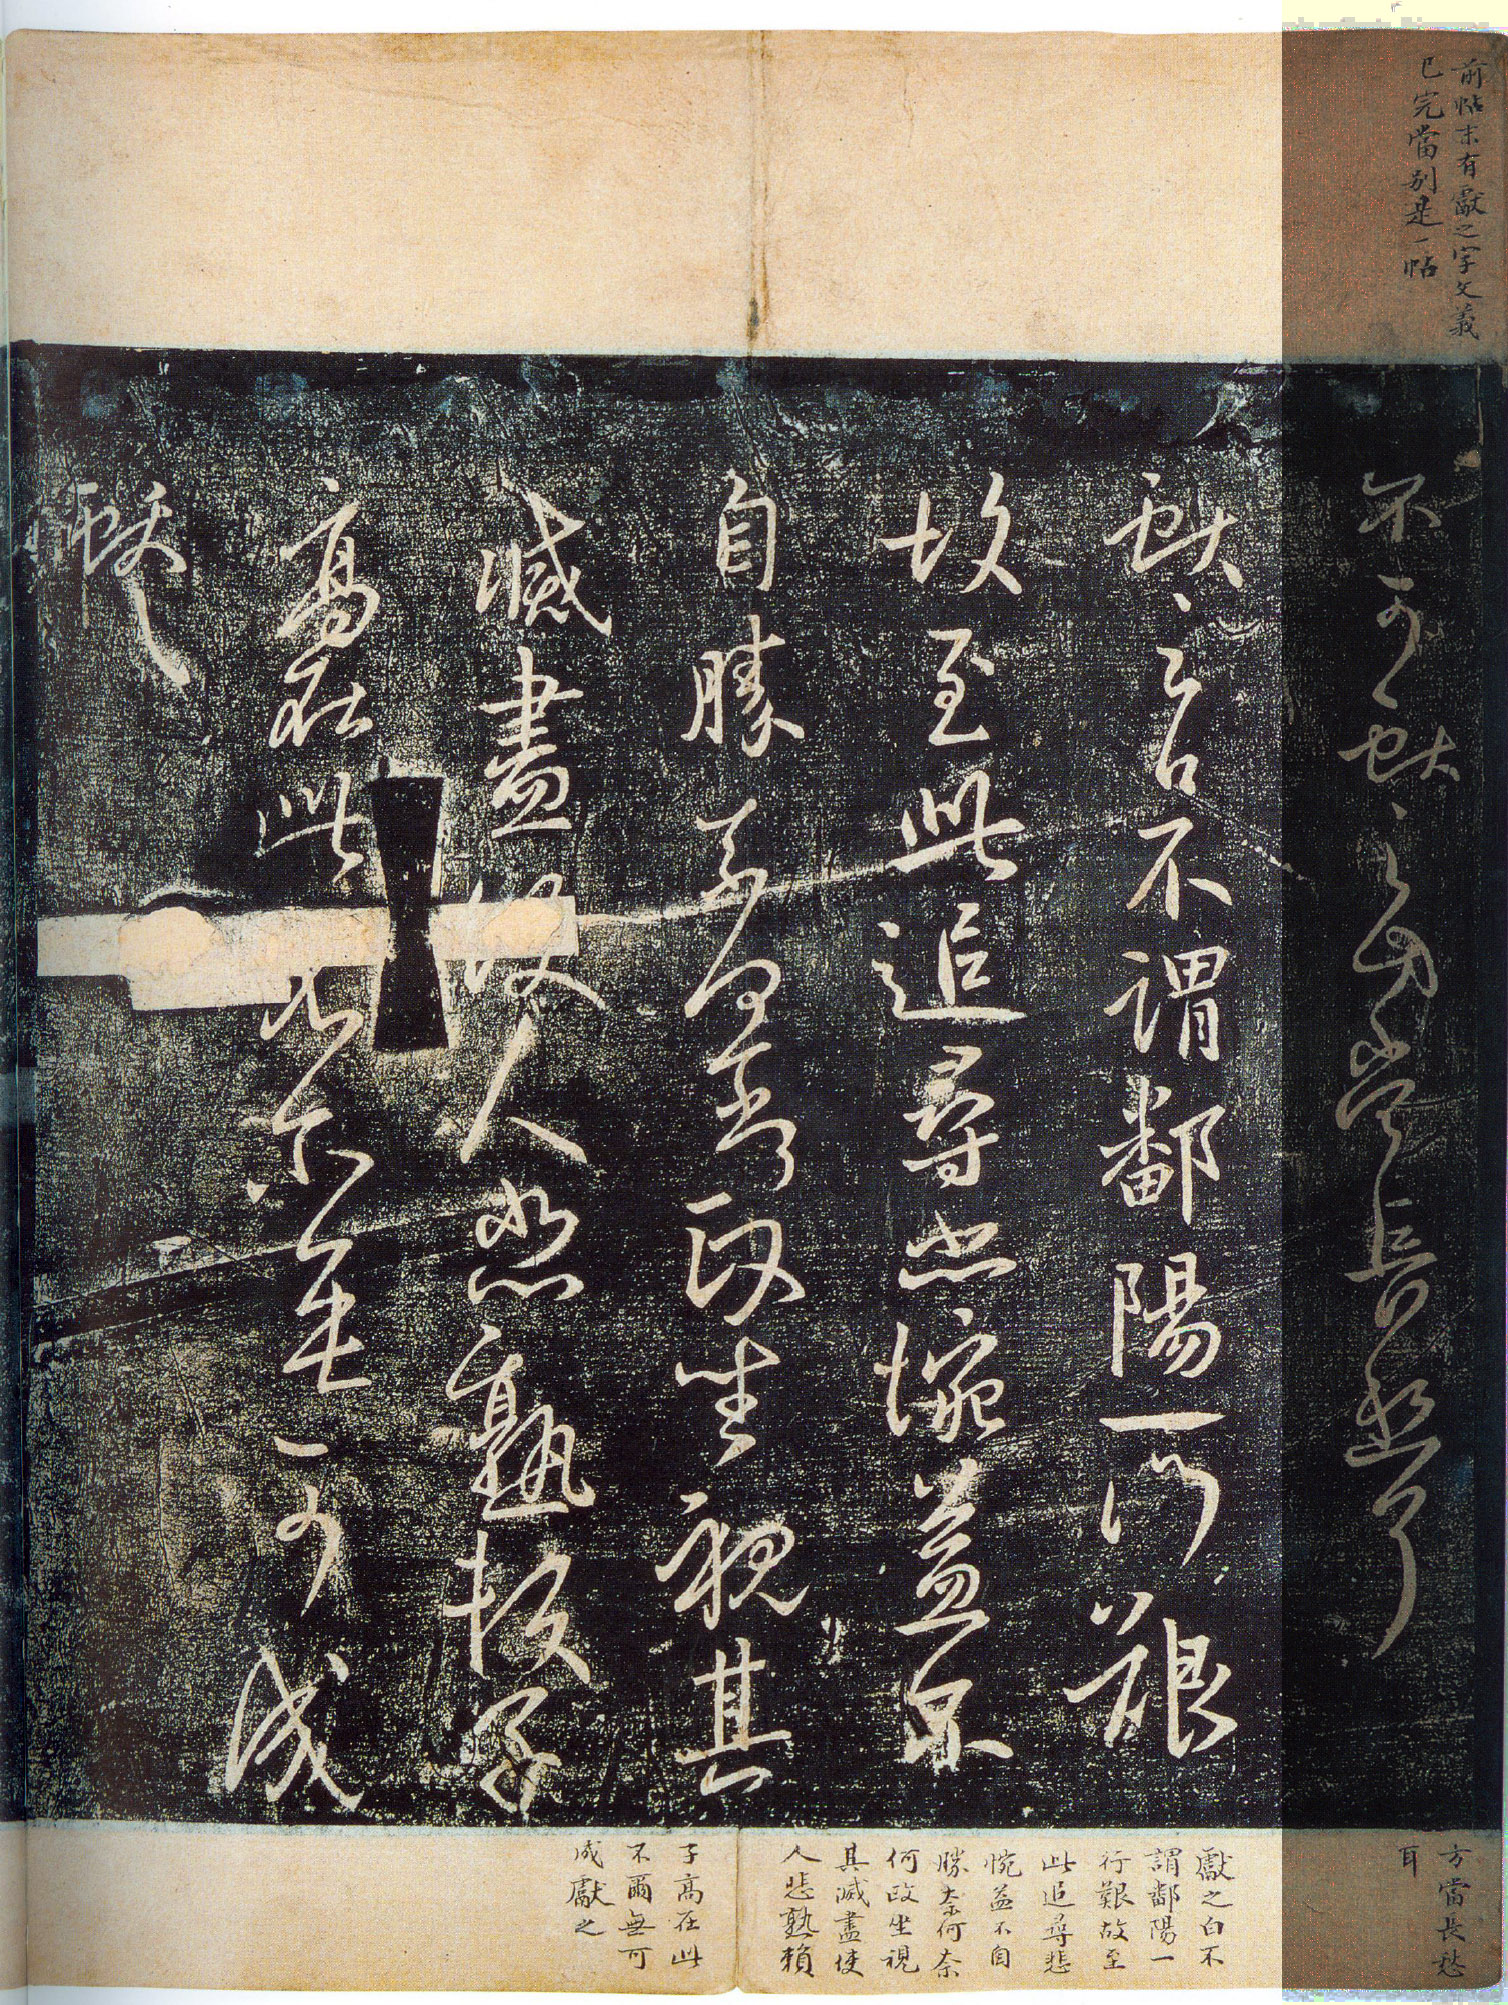 前帖末有獻之字文義
已完當別是一帖
不可獻之
方當長愁
耳
獻之白不謂鄱陽一行艱
故至此追尋悲惋益不自
勝奈何奈何政坐視其
減盡使人悲熟賴子
高在此不爾無可成
獻之
獻之白不
謂鄱陽一
行艱故至
此追尋悲
惋益不自
勝奈何奈
何政坐視
其減盡使
人悲熟賴
子高在此
不爾無可
成獻之